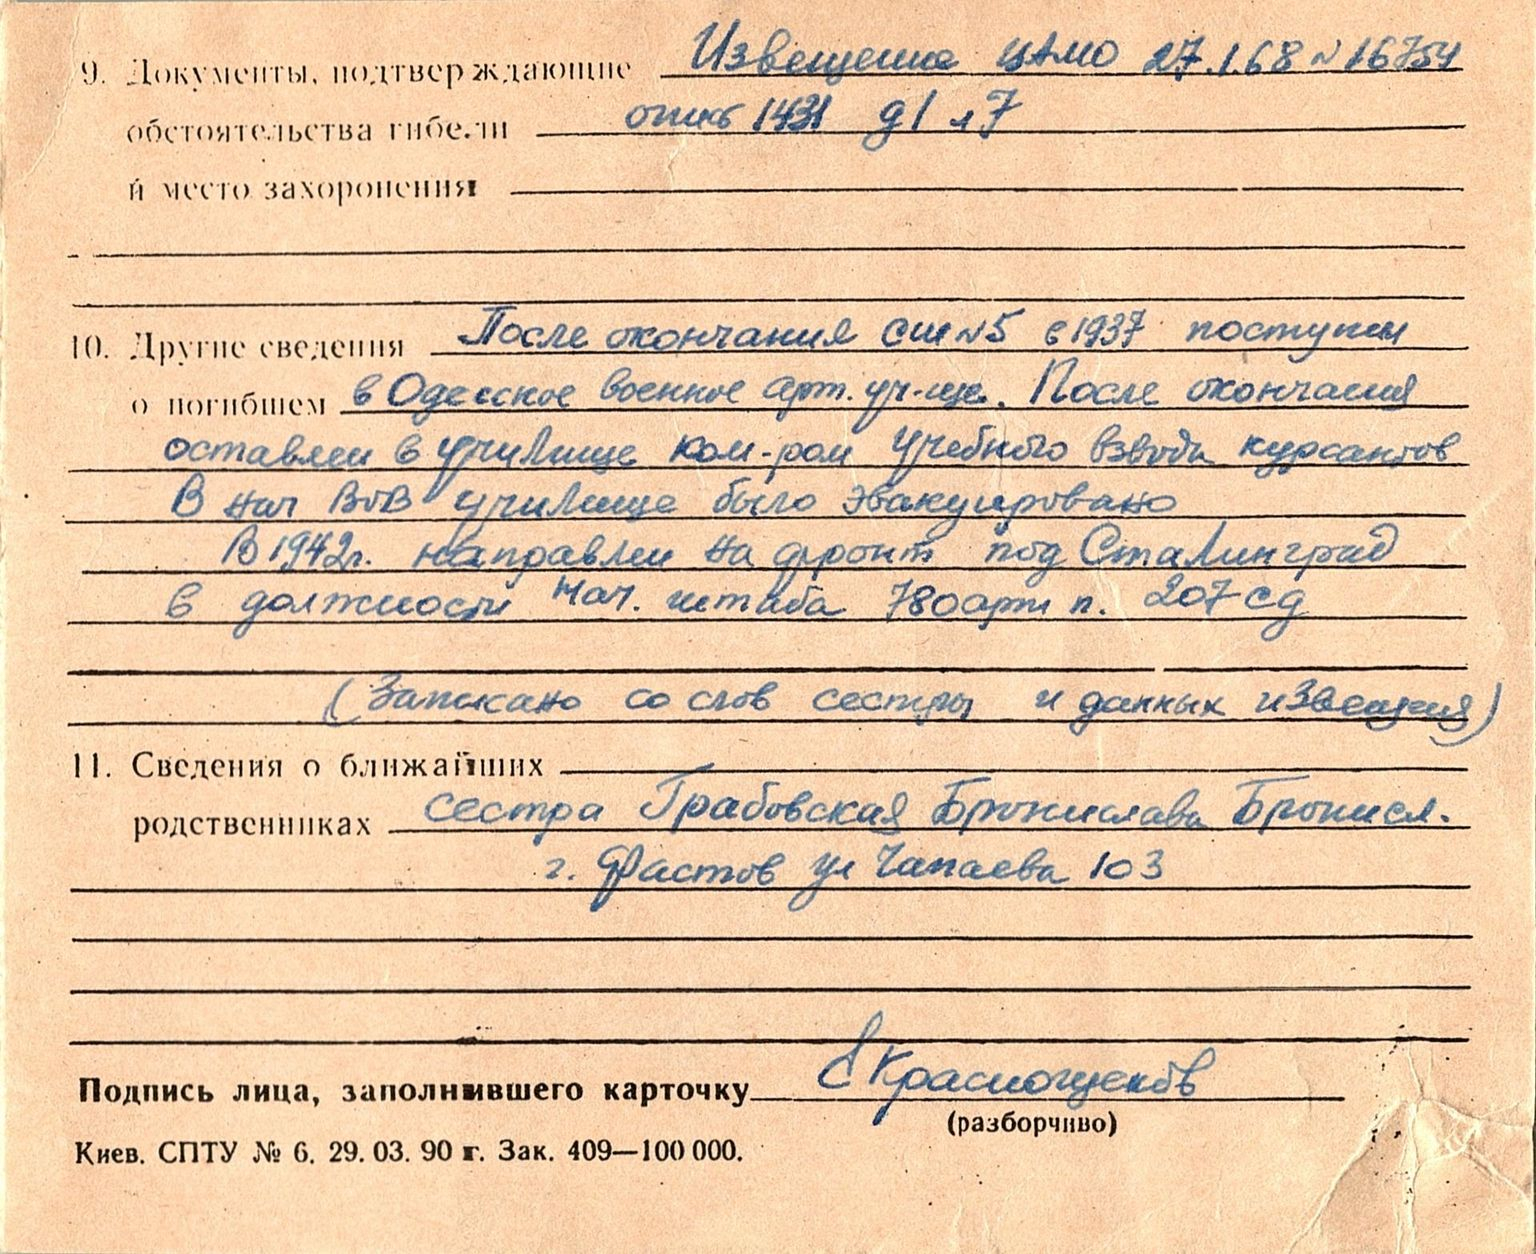 9. Документы, подтверждающие Извещение ЦАМО 27.1.68 № 16754
обстоятельства гибели опись 1431 д1 л7
и место захоронения
10. Другие сведения После окончания СШ №5 в 1937 поступил
о погибшем в Одесское военное арт. уч-ще. После окончания
оставлен в училище ком-ром учебного взвода курсантов
В нач ВОВ училище было эвакуировано
В 1942г. направлен на фронт под Сталинград
в должности нач. штаба 780 арт п. 207 сд
(Записано со слов сестры и данных извещения)
11. Сведения о ближайших
родственниках сестра Грабовская Бронислава Бронисл.
г. Фастов ул Чапаева 103
Подпись лица, заполнившего карточку Красногцеков
(разборчиво)
Киев. СПТУ № 6. 29. 03. 90 г. Зак. 409—100 000.